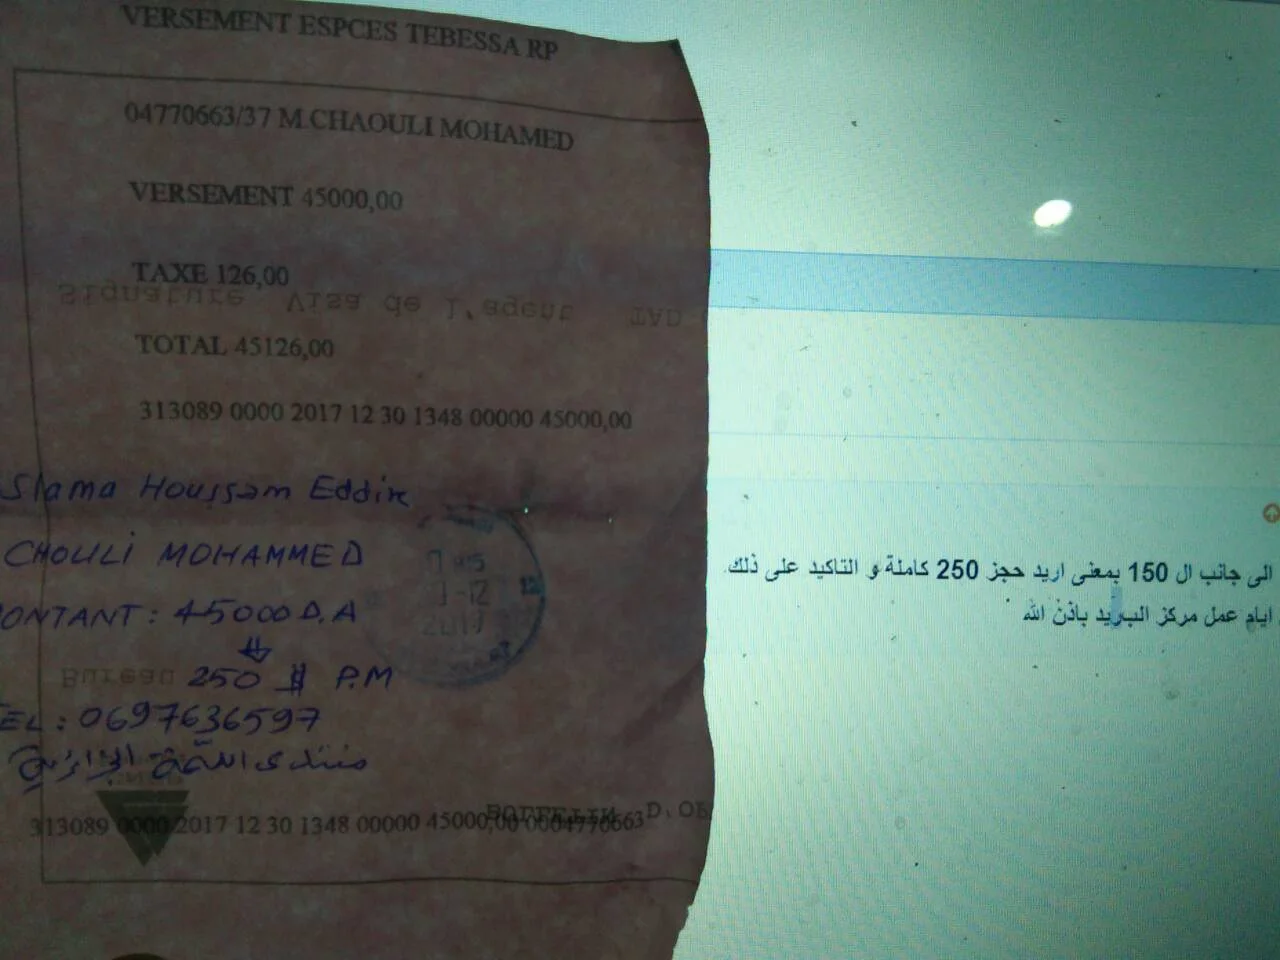 VERSEMENT ESPCES TEBESSA RP
04770663/37 M.CHAOULI MOHAMED
VERSEMENT 45000,00
TAXE 126,00
Signature Visa de l'agent TAD
TOTAL 45126,00
313089 0000 2017 12 30 1348 00000 45000,00
Slama Houssam Eddine
CHOULI MOHAMMED
ONTANT: 45000 D.A
Bureau 250 $ P.M
EL: 0697636597
منتدى اللمة الجزائرية
313089 0000 2017 12 30 1348 00000 45000,00 0004770663
الى جانب ال 150 بمعنى اريد حجز 250 كاملة و التاكيد على ذلك
ايام عمل مركز البريد باذن الله